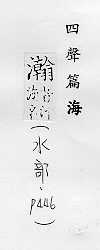 四聲篇海
瀚
(水部、P446)